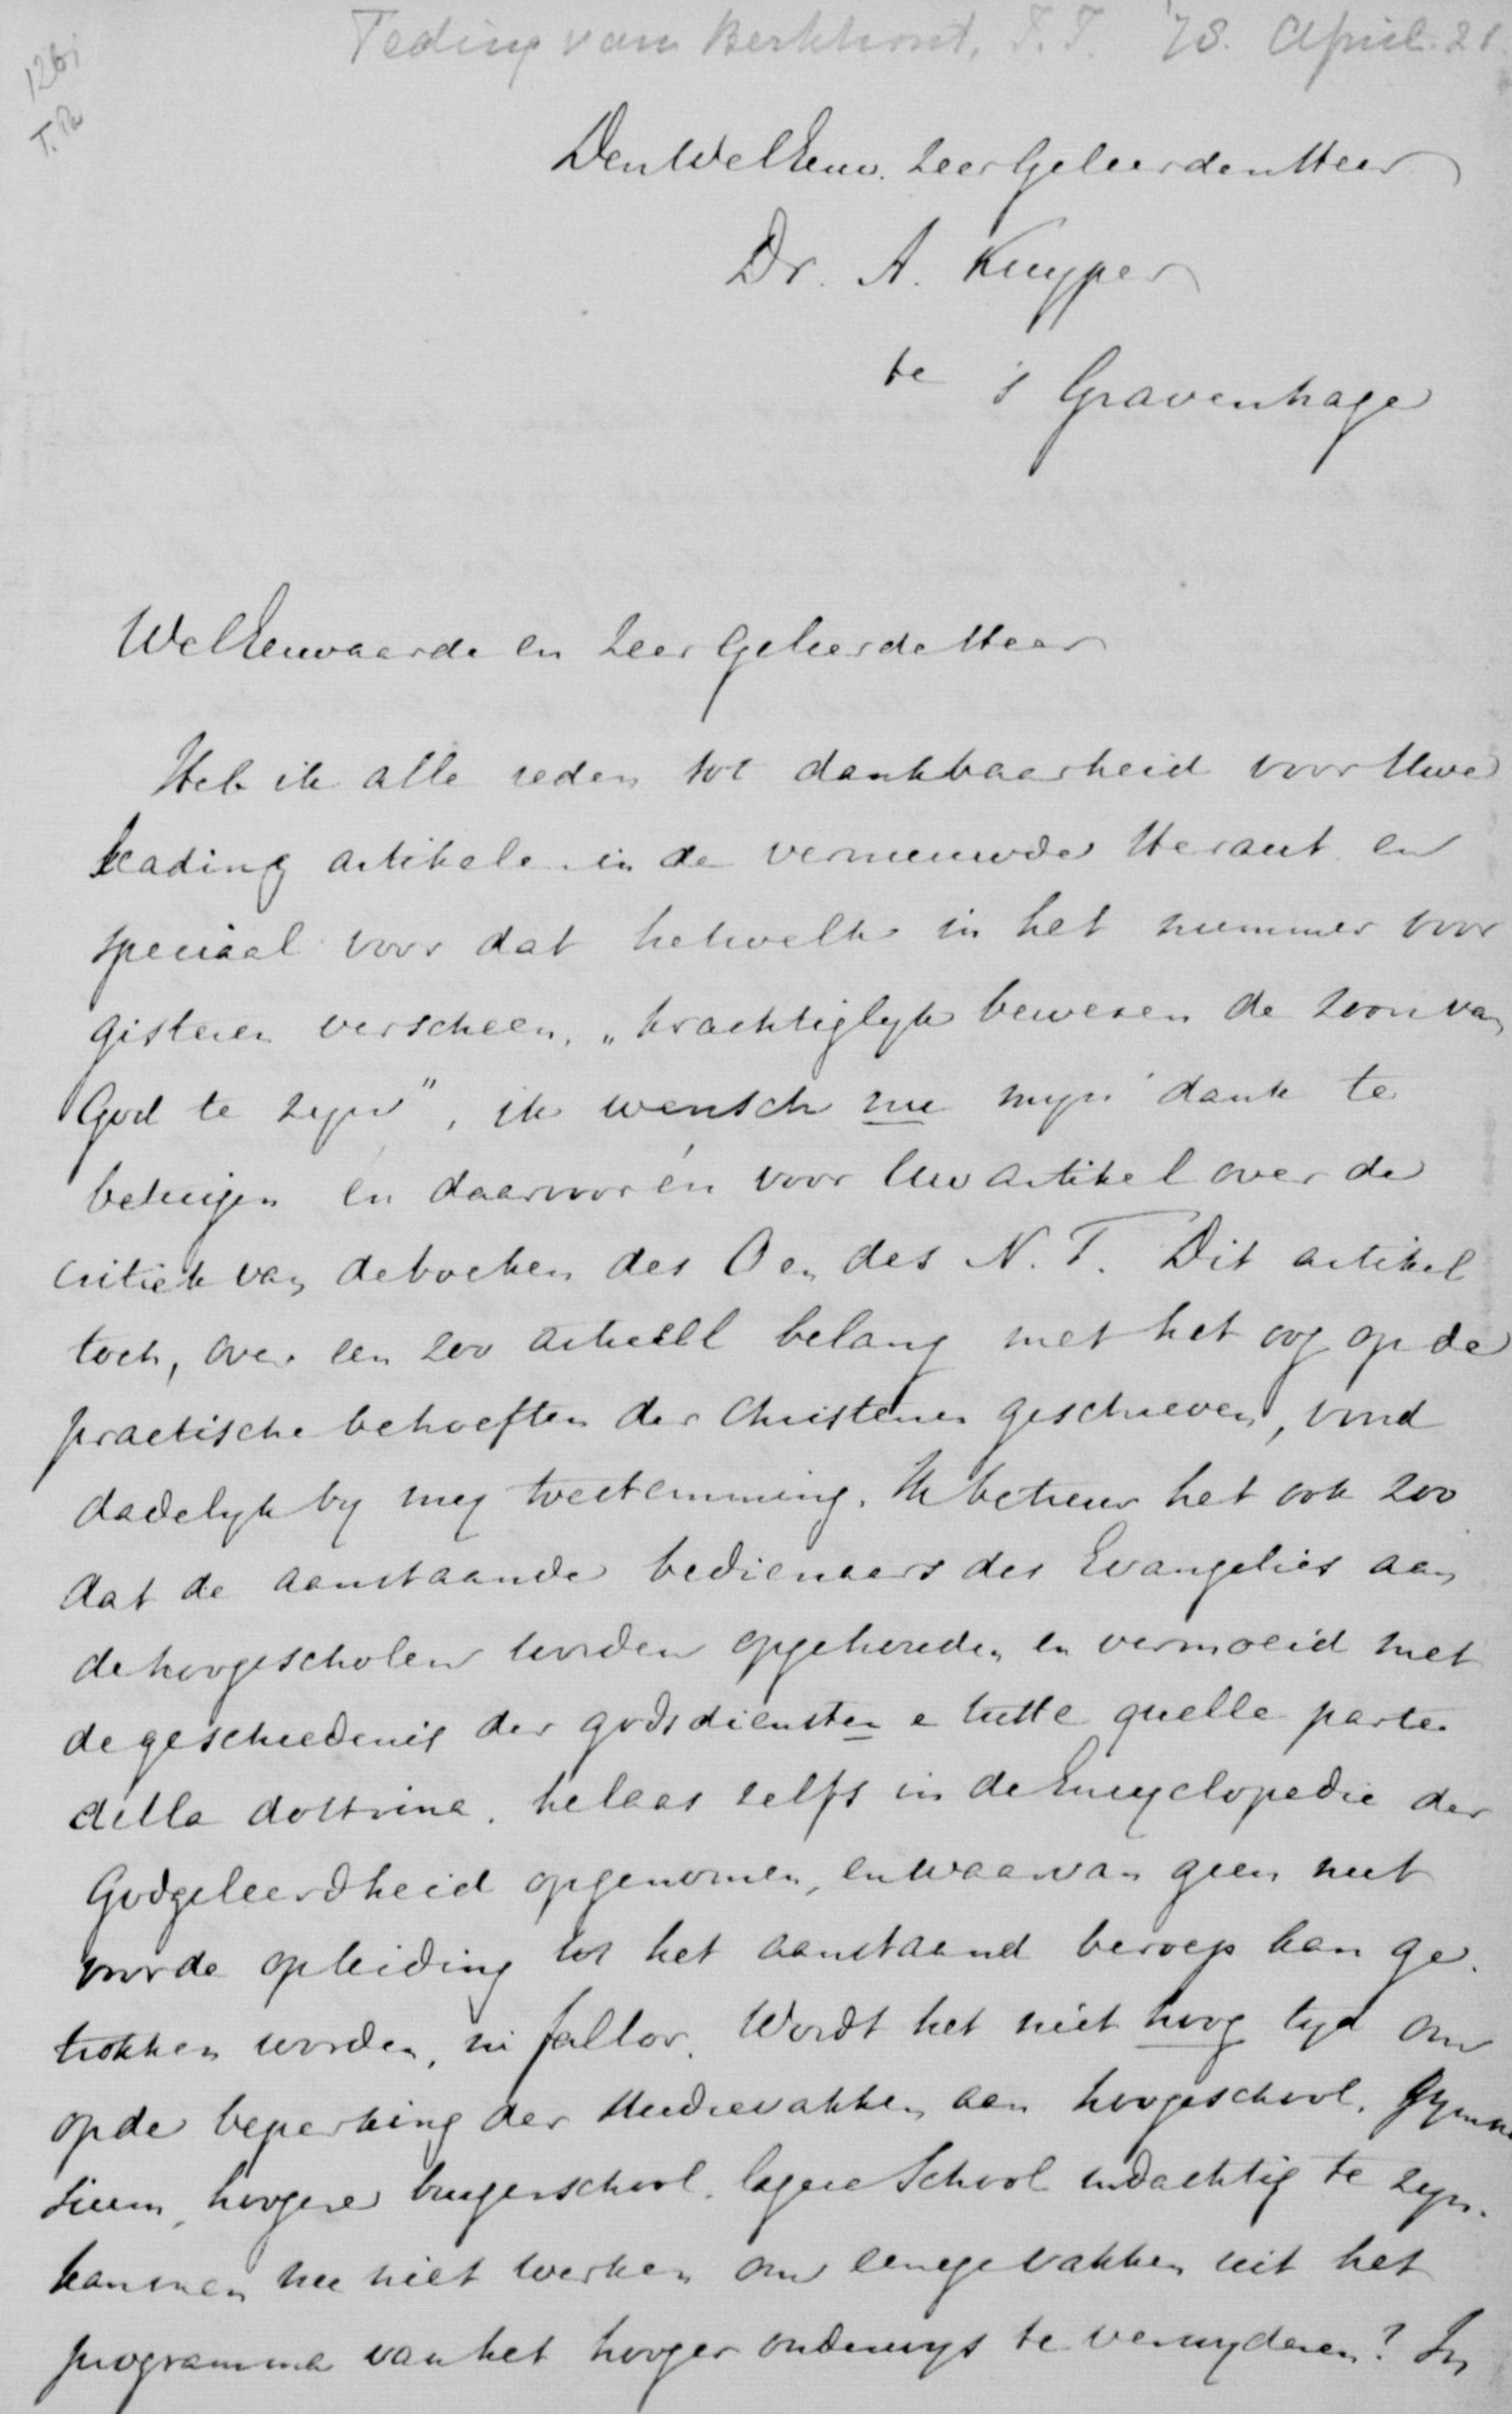 Teding van Berkhout, T.T. '78. April 21
126i
T.B
Den WelEerw. Zeer Geleerden Heer
Dr. A. Kuyper
te 's Gravenhage
WelEerwaarde en Zeer Geleerde Heer
Heb ik alle reden tot dankbaarheid voor Uwe
leading artikels in de vernieuwde Heraut en
speciaal voor dat hetwelk in het nummer voor
gisteren verscheen, „krachtiglyk bewezen de Zoon van
God te zyn", ik wensch nu myn dank te
betuigen én daarvoor én voor Uw artikel over de
critiek van de boeken des O en des N. T. Dit artikel
toch, over een zoo actueel belang met het oog op de
practische behoeften der Christenen geschreven, vind
dadelyk by my toestemming. Ik betreur het ook zoo
dat de aanstaande bedienaars des Evangelies aan
de hoogescholen worden opgehouden en vermoeid met
de geschiedenis der godsdiensten e tutte quelle parte
della dottrina, helaas zelfs in de Encyclopedie der
Godgeleerdheid opgenomen, en waarvan geen nut
voor de opleiding tot het aanstaand beroep kan ge-
trokken worden, ni fallor. Wordt het niet hoog tyd om
op de beperking der studievakken aan hoogeschool, Gymna
sium, hoogere burgerschool, lagere School indachtig te zyn.
kan men nu niet werken om eenige vakken uit het
programma van het hooger onderwys te verwyderen? In